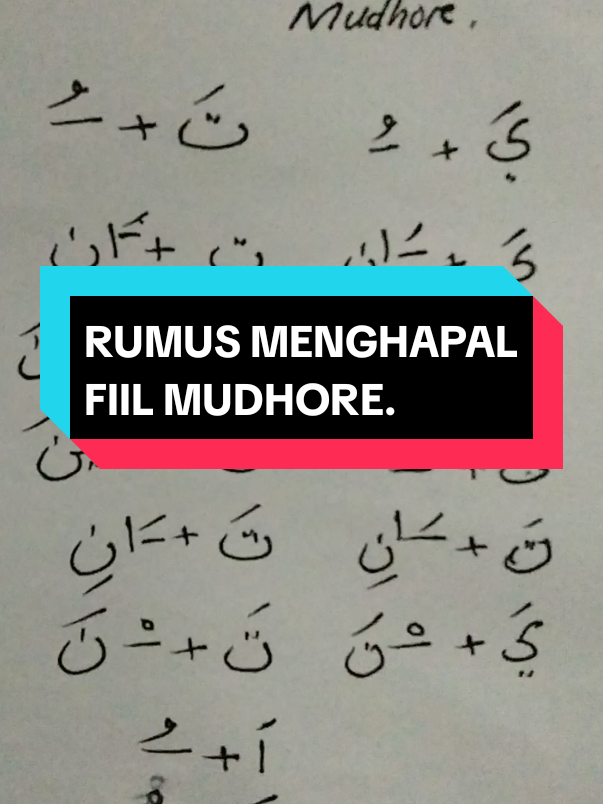 Mudhore.
يَ + ـُ
تَ + ـُ
يَ + ـَان
ت + ـَان
RUMUS MENGHAPAL
FIIL MUDHORE.
تَ + ـَانِ
تَ + ـَانِ
يَ + ـْنَ
تَ + ـْنَ
اَ + ـُ